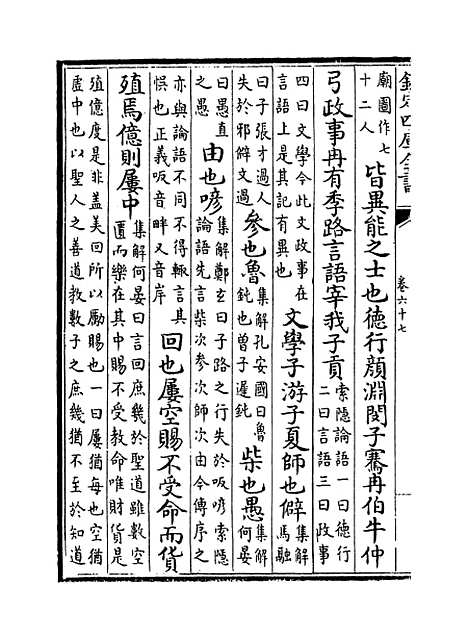 欽定四庫全書
卷六十七
廟圖作七
十二人
皆異能之士也德行顏淵閔子騫冉伯牛仲
弓政事冉有季路言語宰我子貢
索隱論語一曰德行
二曰言語三曰政事
四曰文學今此文政事在
言語上是其記有異也
文學子游子夏師也僻
集解
馬融
曰子張才過人
失於邪僻文過
參也魯
集解孔安國曰魯
鈍也曾子遲鈍
柴也愚
集解
何晏
曰愚直
之愚
由也喭
集解鄭玄曰子路之行失於吸喭索隱
論語先言柴次參次師次由今傳序之
亦與論語不同不得輒言其
悞也正義吸音畔又音岸
回也屢空賜不受命而貨
殖焉億則屢中
集解何晏曰言回庶幾於聖道雖數空
匱而樂在其中賜不受教命唯財貨是
殖億度是非盖美回所以勵賜也一曰屢猶每也空猶
虛中也以聖人之善道教數子之庶幾猶不至於知道